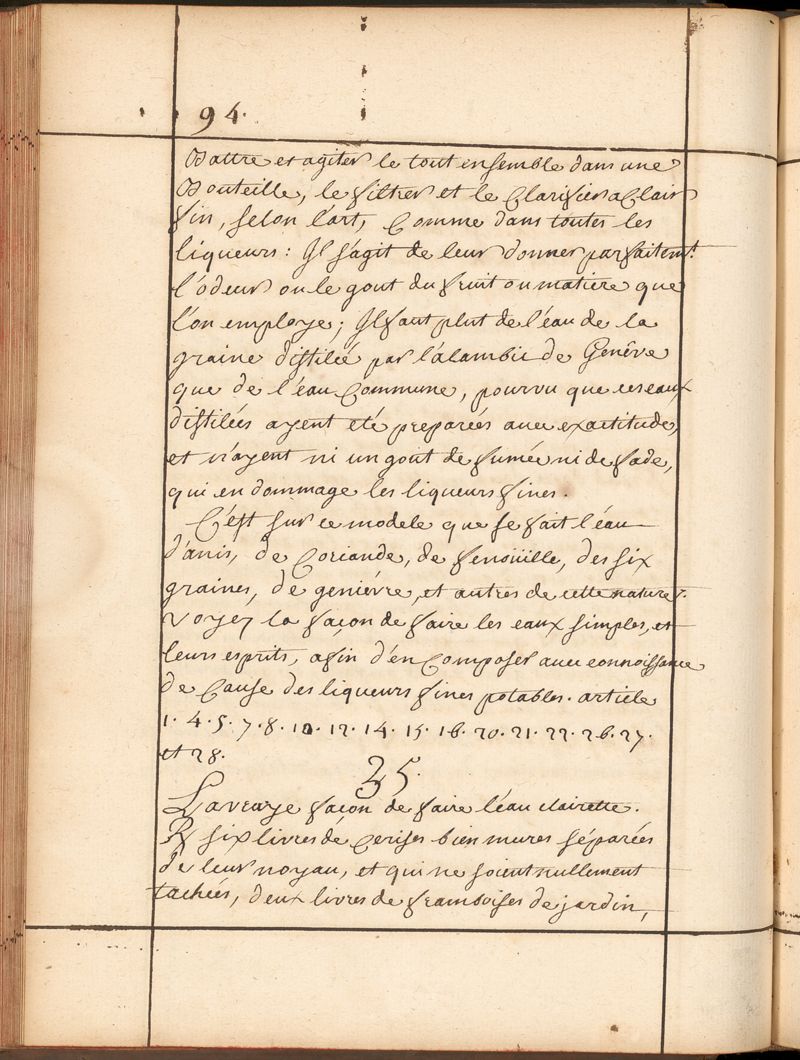 94.
Battre et agiter le tout ensemble dans une
Bouteille, le filtrer et le Clarifier a Clair
fin, selon l'art, Comme dans toutes les
liqueurs: Il s'agit de leur donner parfaitemt.
l'ódeur ou le gout du fruit ou matiere que
l'on employe; Il faut plut de l'éau de la
graine distilée par l'álambic de Genêve
que de l'éau Commune, pourvu que ces eaux
distilées ayent eté preparées avec exactitude,
et n'ayent ni un goût de fumée ni de fade,
qui en dommage les liqueurs fines.
C'est sur ce modele que se fait l'éau
d'anis, de Coriande, de fenoüille, des six
graines, de geniévre, et autres de cette nature.
Voyez la façon de faire les eaux simples, et
leurs esprits, afin d'en Composer avec connoissance
de Cause des liqueurs fines potables. article
1. 4. 5. 7. 8. 10. 12. 14. 15. 16. 20. 21. 22. 26. 27.
et 28.
25.
La veraye façon de faire l'éau clairette.
℞ six livres de Cerises bien mures séparées
de leur noyau, et qui ne soient nullement
tachées, deux livres de framboises de jardin,